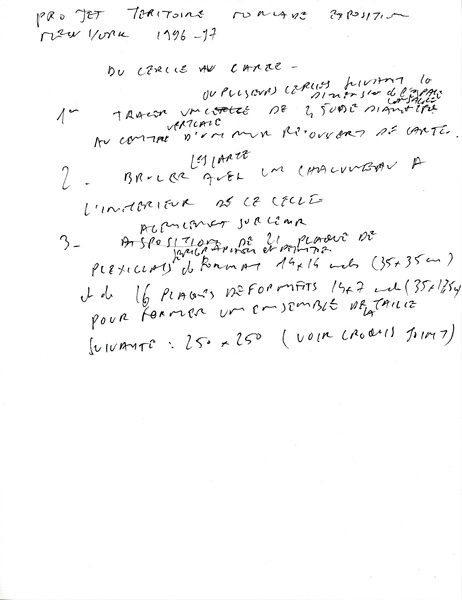 PROJET TERITOIRE NOMADE EXPOSITION
NEW YORK 1996-97
DU CERCLE AU CARRE -
OU PLUSIEURS CERCLES SUIVANT la
DIMENSION de l'ESPACE
1er TRACER UN CERCLE DE 2,50 DE DIAMETRE
VERTICALE
AU CENTRE D'UN MUR RECOUVERT DE CARTE.
LES CARTE
2 - BRULER AVEC UN CHALUMEAU A
L'INTERIEUR DE CE CECLE
ALIGNEMENT SUR LE MUR
3 - DISPOSITION DE 21 PLAQUE DE
SERIGRAPHIEES et PEINTES
PLEXIGLASS de FORMAT 14x14 inch (35x35 cm)
et de 16 PLAQUES DE FORMATS 14x7 inch (35x17,5cm)
POUR FORMER UN ENSEMBLE DE LA TAILLE
SUIVANTE : 250 x 250 (VOIR CROQUIS JOINT)